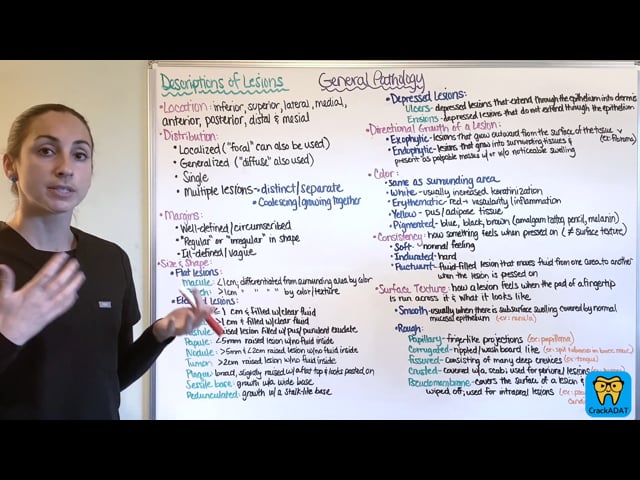 Descriptions of Lesions
General Pathology
•Location: inferior, superior, lateral, medial,
anterior, posterior, distal & mesial
•Distribution:
•Localized ("focal" can also be used)
•Generalized ("diffuse" also used)
•Single
•Multiple lesions-distinct/separate
•Coalescing/growing together
•Margins:
•Well-defined/circumscribed
•"Regular" or "irregular" in shape
•Ill-defined/vague
•Size & Shape:
•Flat lesions:
Macule: <1cm; differentiated from surrounding area by color
>1cm " " " " by color/texture
lesions:
1 cm & filled w/clear fluid
1cm + filled w/clear fluid
raised lesion filled w/ pus/purulent exudate
Papule: <5mm raised lesion w/no fluid inside
Nodule: >5mm & <2cm raised lesion w/no fluid inside
Tumor: >2cm raised lesion w/no fluid inside
Plaque: broad, slightly raised w/a flat top & looks pasted on
Sessile base: growth w/a wide base
Pedunculated: growth w/a stalk-like base
•Depressed Lesions:
Ulcers- depressed lesions that extend through the epithelium into dermis
Erosions- depressed lesions that do not extend through the epithelium
•Directional Growth of a Lesion:
•Exophytic- lesions that grow outward from the surface of the tissue
(ex: fibroma)
•Endophytic- lesions that grow into surrounding tissues &
present as palpable masses w/ or w/o noticeable swelling
•Color:
•Same as surrounding area
•White- usually increased keratinization
•Erythematic- red → vascularity/inflammation
•Yellow- pus/adipose tissue
•Pigmented- blue, black, brown (amalgam tattoo, pencil, melanin)
•Consistency: how something feels when pressed on (≠ surface texture)
•Soft- normal feeling
•Indurated- hard
•Fluctuant- fluid-filled lesion that moves fluid from one area to another
when the lesion is pressed on
•Surface Texture: how a lesion feels when the pad of a fingertip
is run across it & what it looks like
•Smooth- usually when there is subsurface swelling covered by normal
mucosa/epithelium (ex: ranula)
•Rough:
Papillary- finger-like projections (ex: papilloma)
Corrugated- rippled/washboard like
Fissured- consisting of many deep crevices (ex: tongue)
Crusted- covered w/a scab; used for perioral lesions
Pseudomembrane- covers the surface of a lesion &
wiped off; used for intraoral lesions
CrackADAT